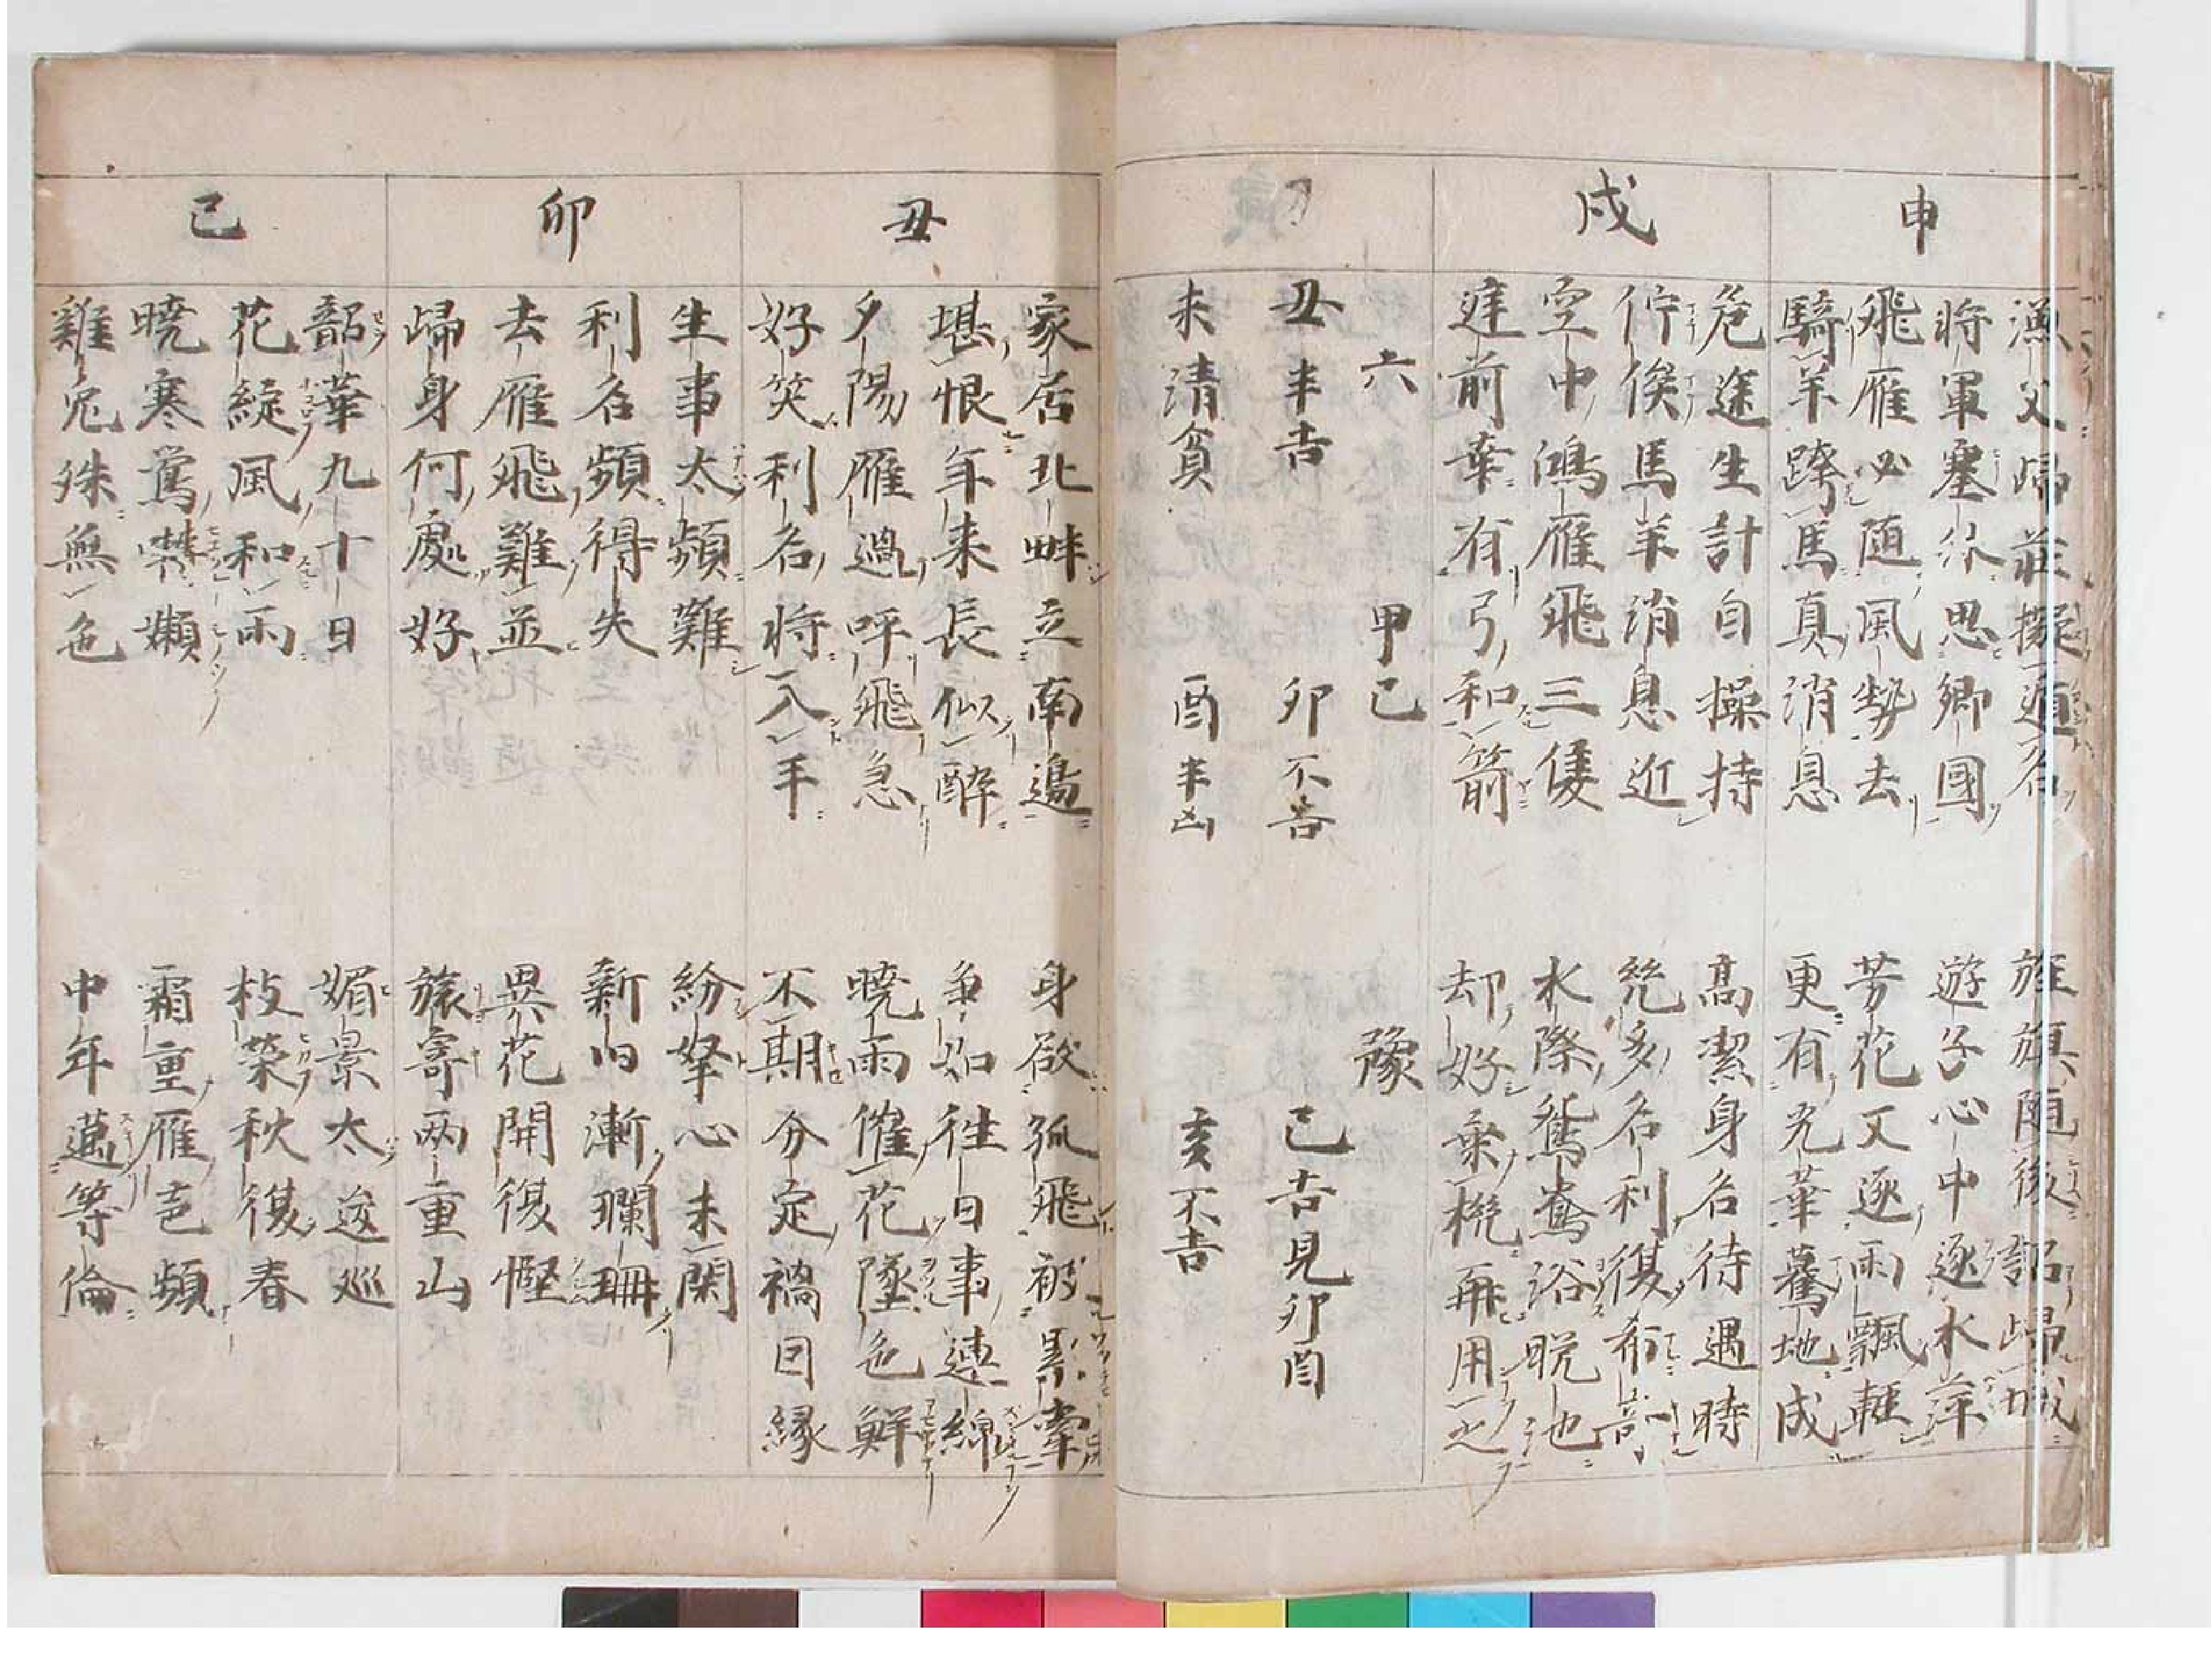 申
漁父歸莊擬遁名
旌旗随後詔歸城
將軍塞外思卿國
遊子心中逐水萍
飛雁必随風勢去
芳花又逐雨飄輕
騎羊跨馬真消息
更有光華驀地成
戌
危途生計自操持
高潔身名待遇時
佇候馬羊消息近
終多名利復希奇
空中鴻雁飛三侯
水際鴛鴦浴晩池
遶前莫有弓和箭
却好乘機再用之
六 甲己 豫
丑半吉 卯不吉 己吉見卯酉
未清貧 酉半凶 亥不吉
丑
家居北畔立南邊
身欲孤飛被累牽
堪恨年来長似醉
争如往日事連綿
夕陽雁過呼飛急
曉雨催花墜色鮮
好笑利名将入手
不期分定禍因縁
卯
生事太頻難
紛拏心未閑
利名頻得失
新旧漸瓓珊
去雁飛難並
異花開復慳
歸身何處好
旅寄兩重山
己
韶華九十日
媚景太逡巡
花綻風和雨
枝榮秋復春
曉寒鶯囀嬾
霜重雁声頻
雞兎殊無色
中年邁等倫